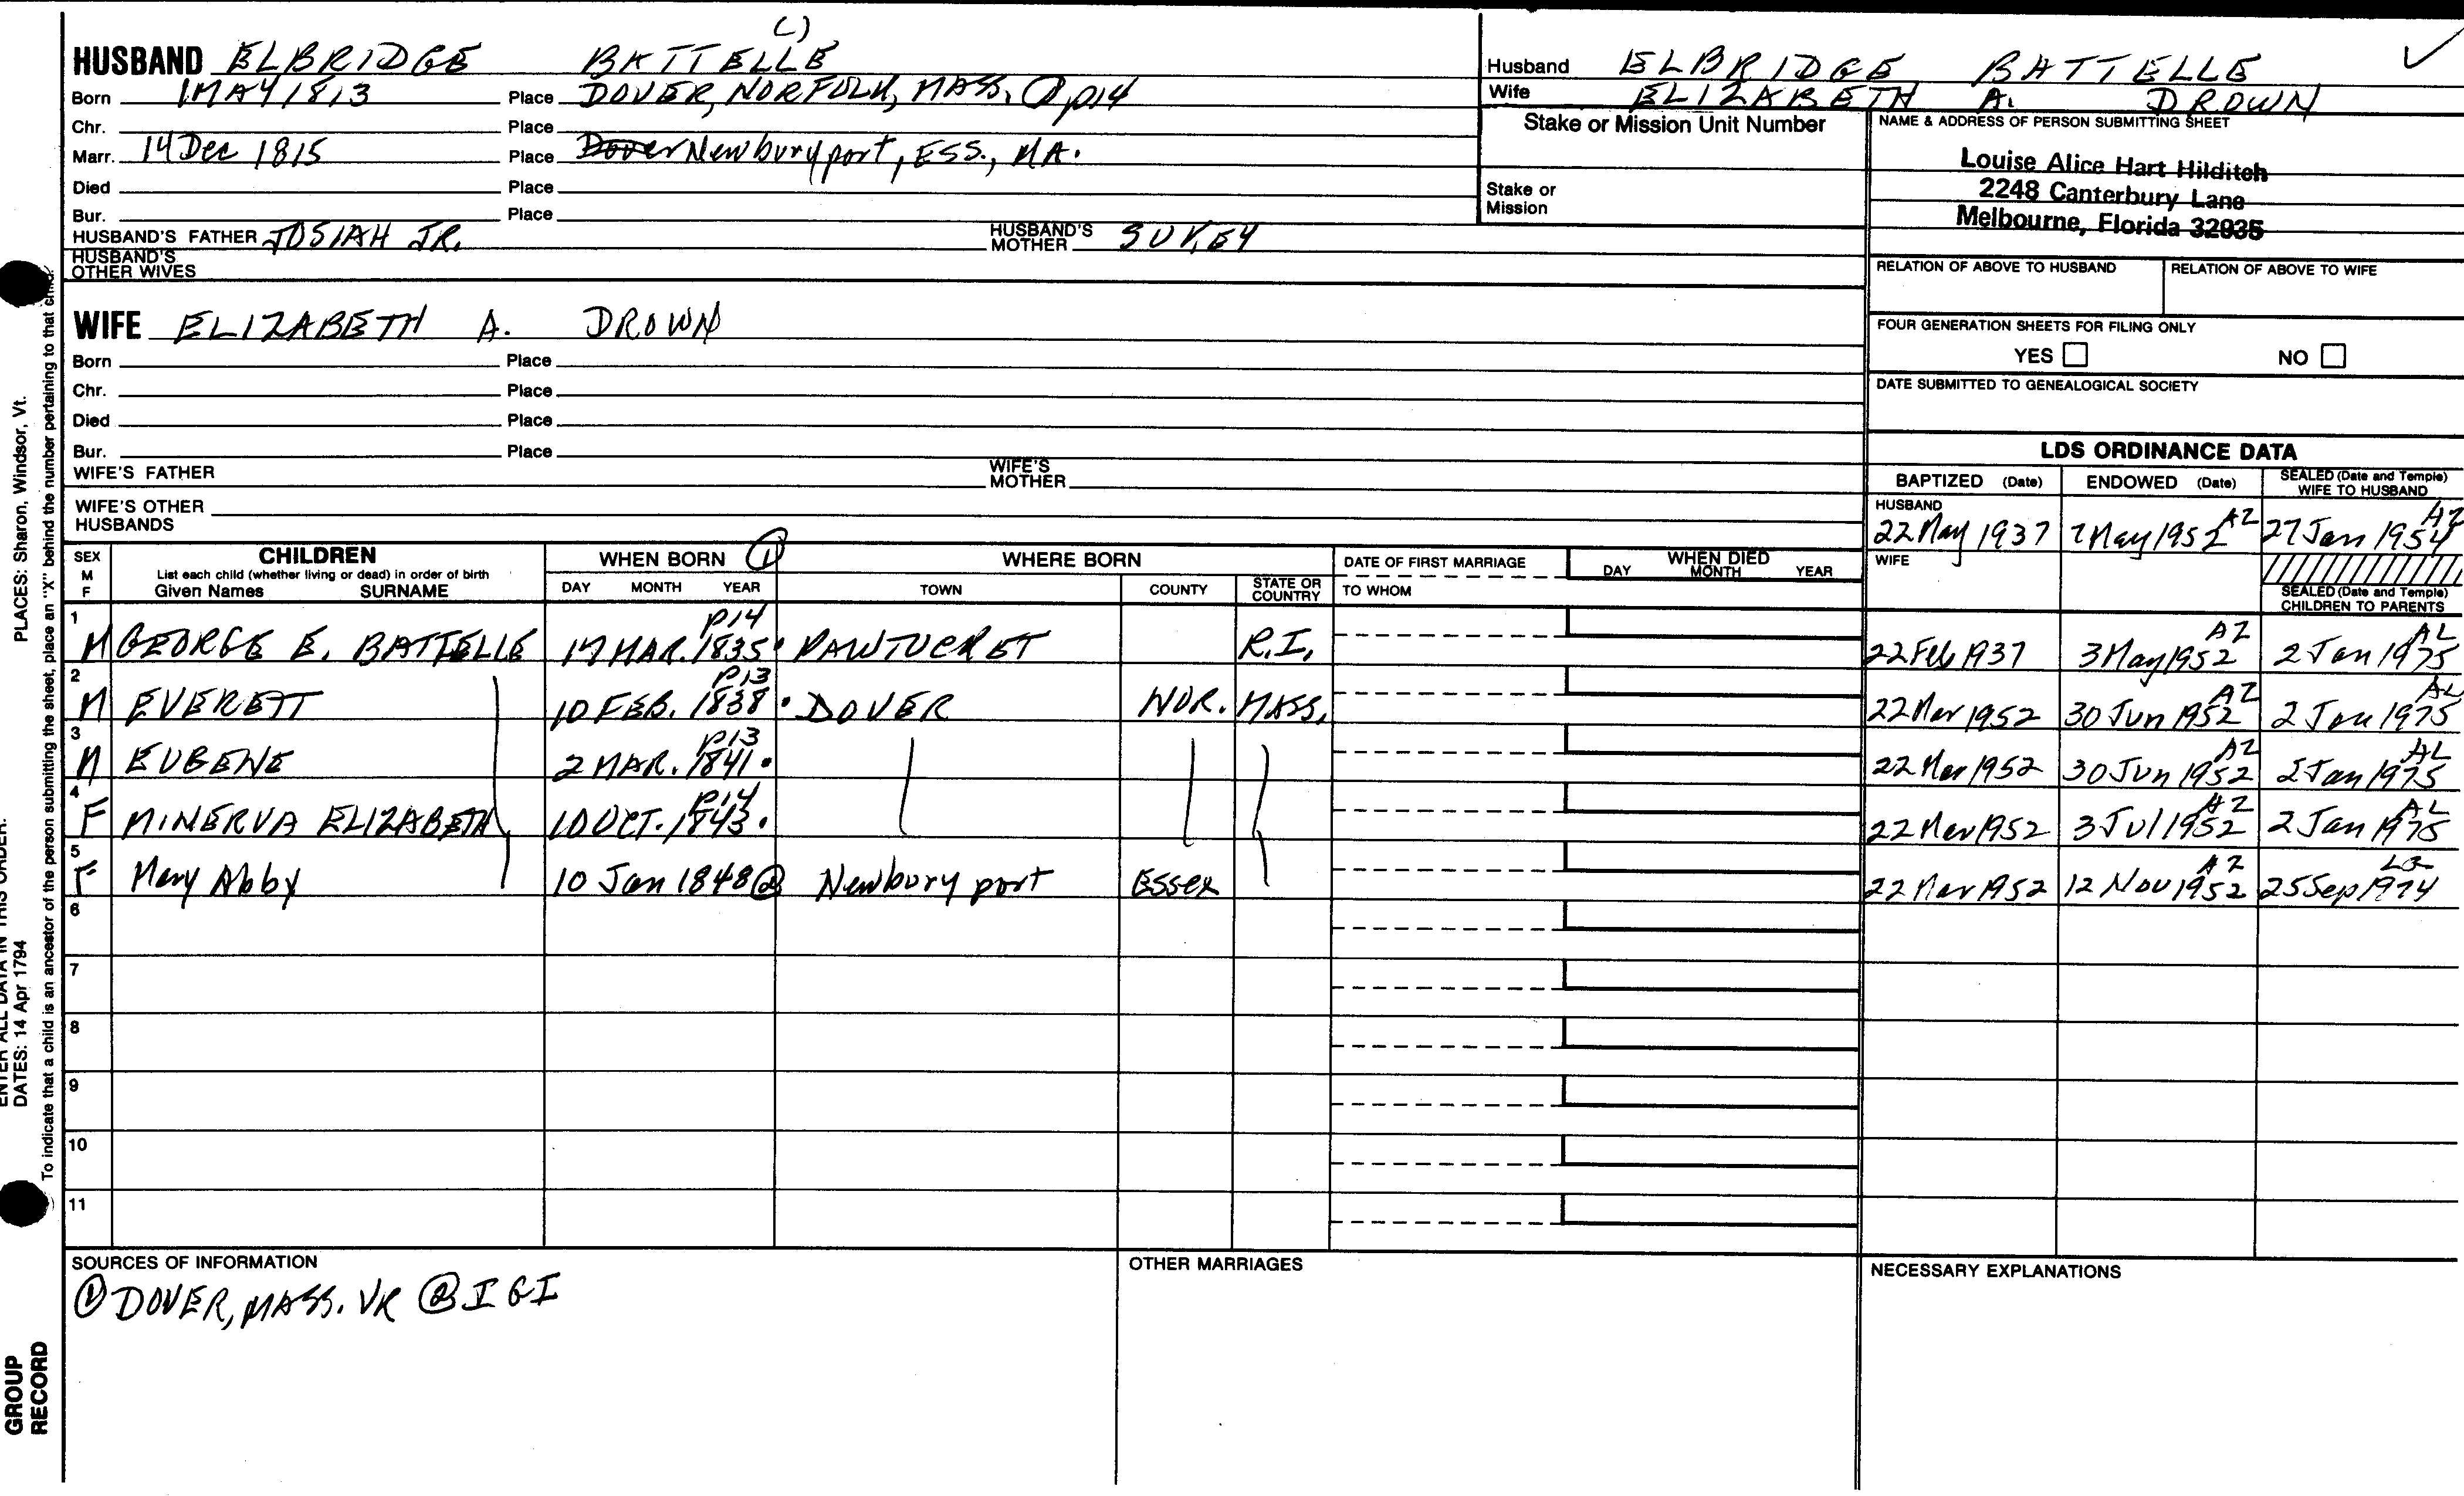 ( )
HUSBAND ELBRIDGE BATTELLE
Born 1 MAY 1813 Place DOVER, NORFOLK, MASS, ① p14
Chr. Place
Marr. 14 Dec 1815 Place Dover Newburyport, ESS., MA.
Died Place
Bur. Place
HUSBAND'S FATHER JOSIAH JR. HUSBAND'S MOTHER SUKEY
HUSBAND'S OTHER WIVES
WIFE ELIZABETH A. DROWN
Born Place
Chr. Place
Died Place
Bur. Place
WIFE'S FATHER WIFE'S MOTHER
WIFE'S OTHER HUSBANDS
Husband ELBRIDGE BATTELLE ✓
Wife ELIZABETH A. DROWN
Stake or Mission Unit Number
Stake or Mission
NAME & ADDRESS OF PERSON SUBMITTING SHEET
Louise Alice Hart Hilditch
2248 Canterbury Lane
Melbourne, Florida 32935
RELATION OF ABOVE TO HUSBAND RELATION OF ABOVE TO WIFE
FOUR GENERATION SHEETS FOR FILING ONLY
YES NO
DATE SUBMITTED TO GENEALOGICAL SOCIETY
LDS ORDINANCE DATA
BAPTIZED (Date) ENDOWED (Date) SEALED (Date and Temple) WIFE TO HUSBAND
HUSBAND
22 May 1937 7 May 1952 AZ 27 Jan 1954 AZ
WIFE
SEALED (Date and Temple) CHILDREN TO PARENTS
SEX M F CHILDREN List each child (whether living or dead) in order of birth Given Names SURNAME WHEN BORN ① DAY MONTH YEAR WHERE BORN TOWN COUNTY STATE OR COUNTRY DATE OF FIRST MARRIAGE TO WHOM WHEN DIED DAY MONTH YEAR
1 M GEORGE E. BATTELLE 17 MAR. 1835 p14 PAWTUCKET R.I. 22 Feb 1937 3 May 1952 AZ 2 Jan 1975 AL
2 M EVERETT 10 FEB. 1838 p13 DOVER NOR. MASS. 22 Mar 1952 30 Jun 1952 AZ 2 Jan 1975 AL
3 M EUGENE 2 MAR. 1841 p13 22 Mar 1952 30 Jun 1952 AZ 2 Jan 1975 AL
4 F MINERVA ELIZABETH 10 OCT. 1843 p14 22 Mar 1952 3 Jul 1952 AZ 2 Jan 1975 AL
5 F Mary Abby 10 Jan 1848 ② Newburyport Essex 22 Mar 1952 12 Nov 1952 AZ 25 Sep 1974
6
7
8
9
10
11
SOURCES OF INFORMATION
① DOVER, MASS. VR ② IGI
OTHER MARRIAGES
NECESSARY EXPLANATIONS
ENTER ALL DATA IN THIS ORDER:
DATES: 14 Apr 1794 PLACES: Sharon, Windsor, Vt.
To indicate that a child is an ancestor of the person submitting the sheet, place an "X" behind the number pertaining to that child.
GROUP
RECORD